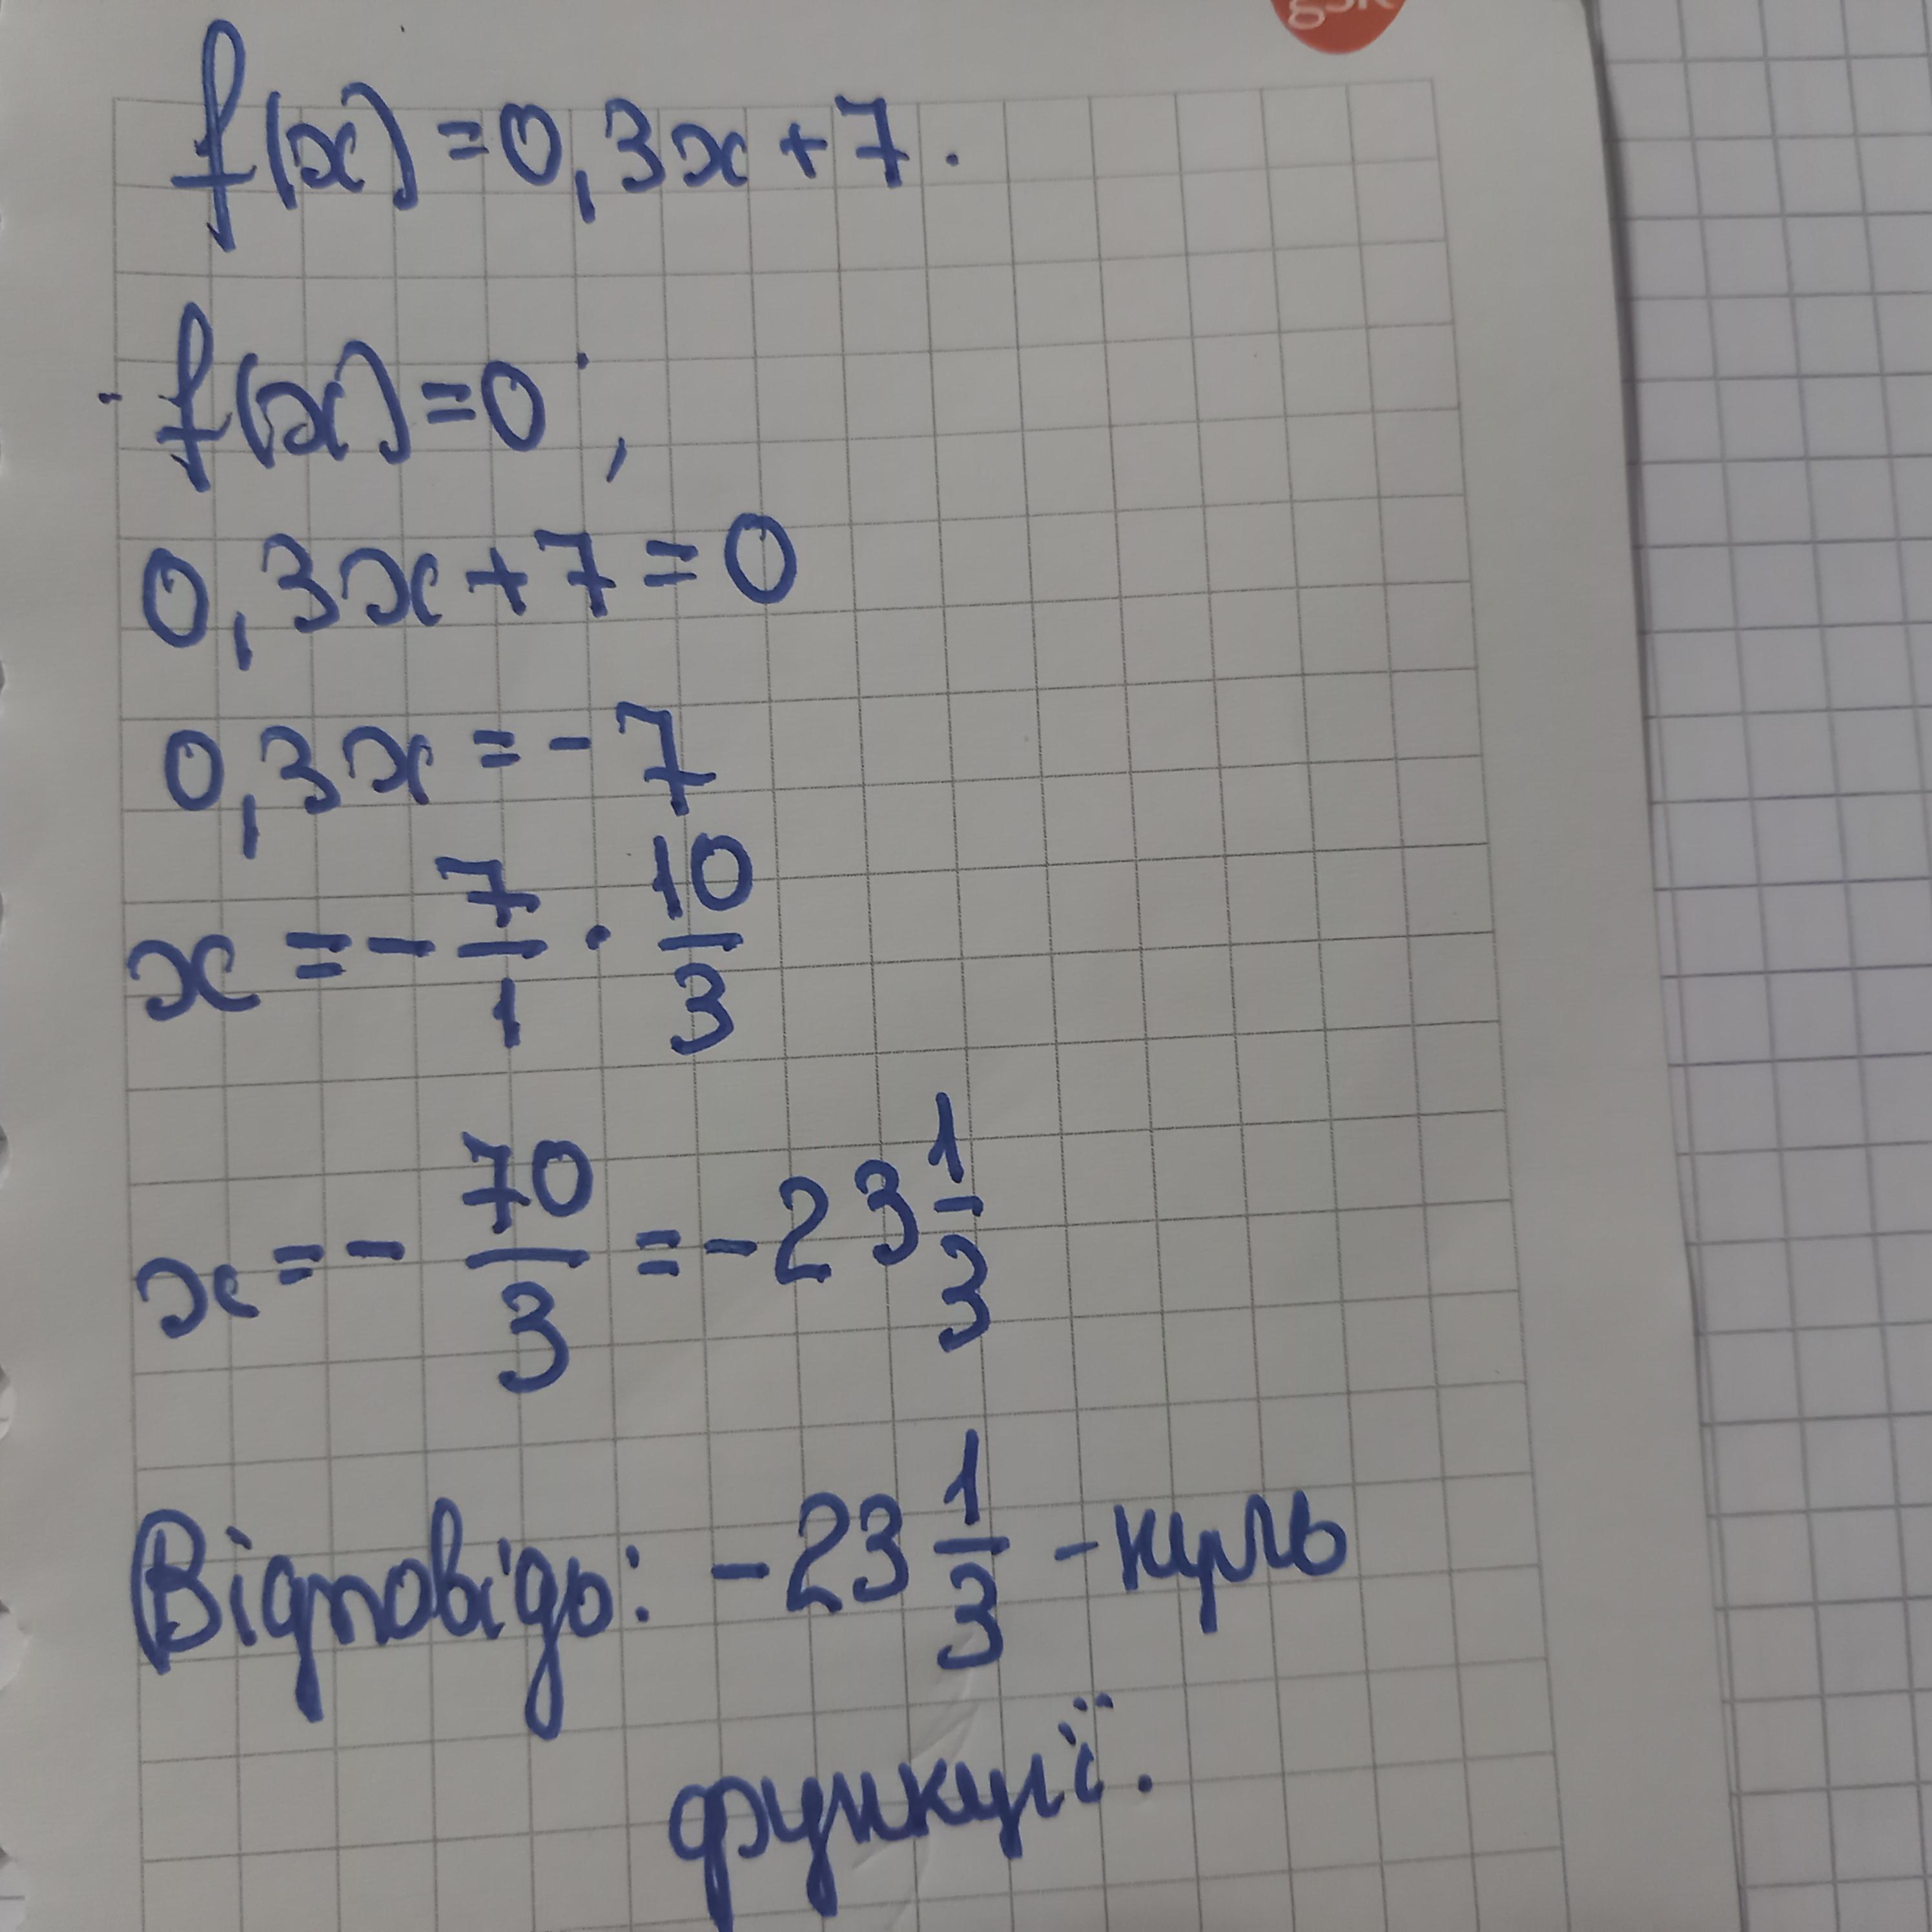 f(x)=0,3x+7.
f(x)=0;
0,3x+7=0
0,3x=-7
x=-7/1·10/3
x=-70/3=-23 1/3
Відповідь: -23 1/3 - нуль
функції.